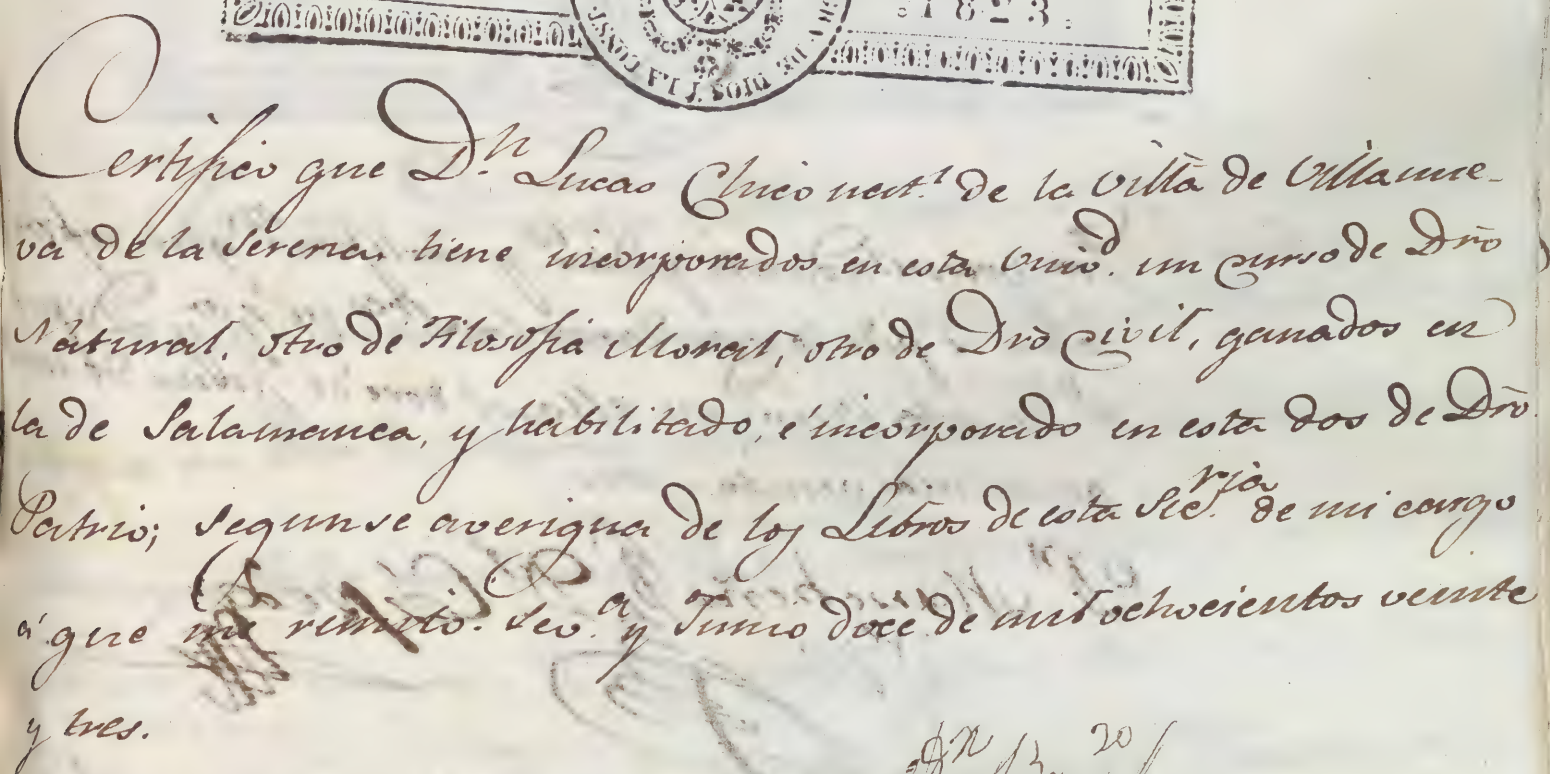 1823.
A DE DIOS Y LA CONST.
Certifico que D.n Lucas Chico nat.l de la Villa de Villanue-
va de la Serena, tiene incorporados en esta Univ.d un curso de Dro
Natural, otro de Filosofia Moral, otro de Dro Civil, ganados en
la de Salamanca, y habilitado, é incorporado en esta dos de Dro
Patrio; segun se averigua de los Libros de esta Sec.ria de mi cargo
á que me remito. Sev.a y Junio doce de mil ochocientos veinte
y tres.